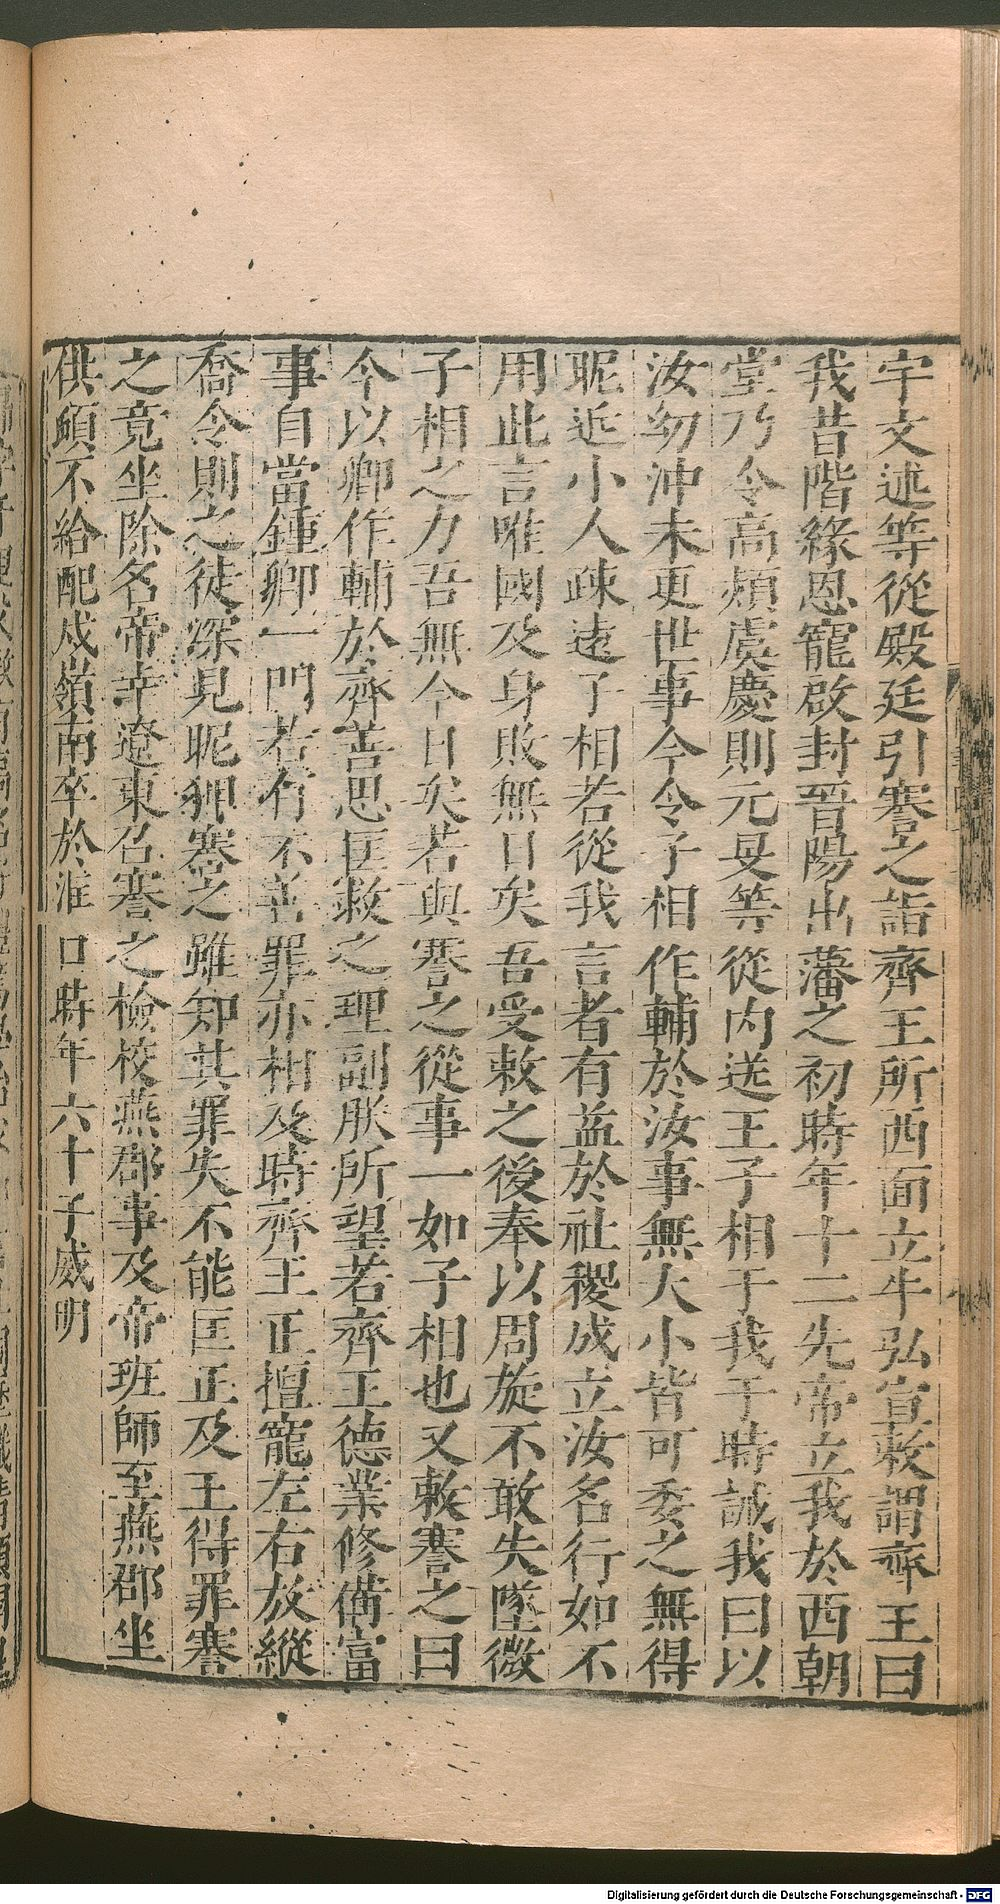 宇文述等從殿廷引謇之詣齊王所西面立牛弘宣敕謂齊王曰
我昔階緣恩寵啟封晉陽出藩之初時年十二先帝立我於西朝
堂乃令高熲虞慶則元旻等從内送王子相于我于時誡我曰以
汝幼沖未更世事今令子相作輔於汝事無大小皆可委之無得
昵近小人疎遠子相若從我言者有益於社稷成立汝名行如不
用此言唯國及身敗無日矣吾受敕之後奉以周旋不敢失墜微
子相之力吾無今日矣若與謇之從事一如子相也又敕謇之曰
今以卿作輔於齊善思匡救之理副朕所望若齊王德業修備富
事自當鍾卿一門若有不善罪亦相及時齊王正擅寵左右放縱
喬令則之徒深見昵狎謇之雖知其罪失不能匡正及王得罪謇
之竟坐除名帝幸遼東召謇之檢校燕郡事及帝班師至燕郡坐
供頓不給配戍嶺南卒於洭口時年六十子威明
Digitalisierung gefördert durch die Deutsche Forschungsgemeinschaft - DFG